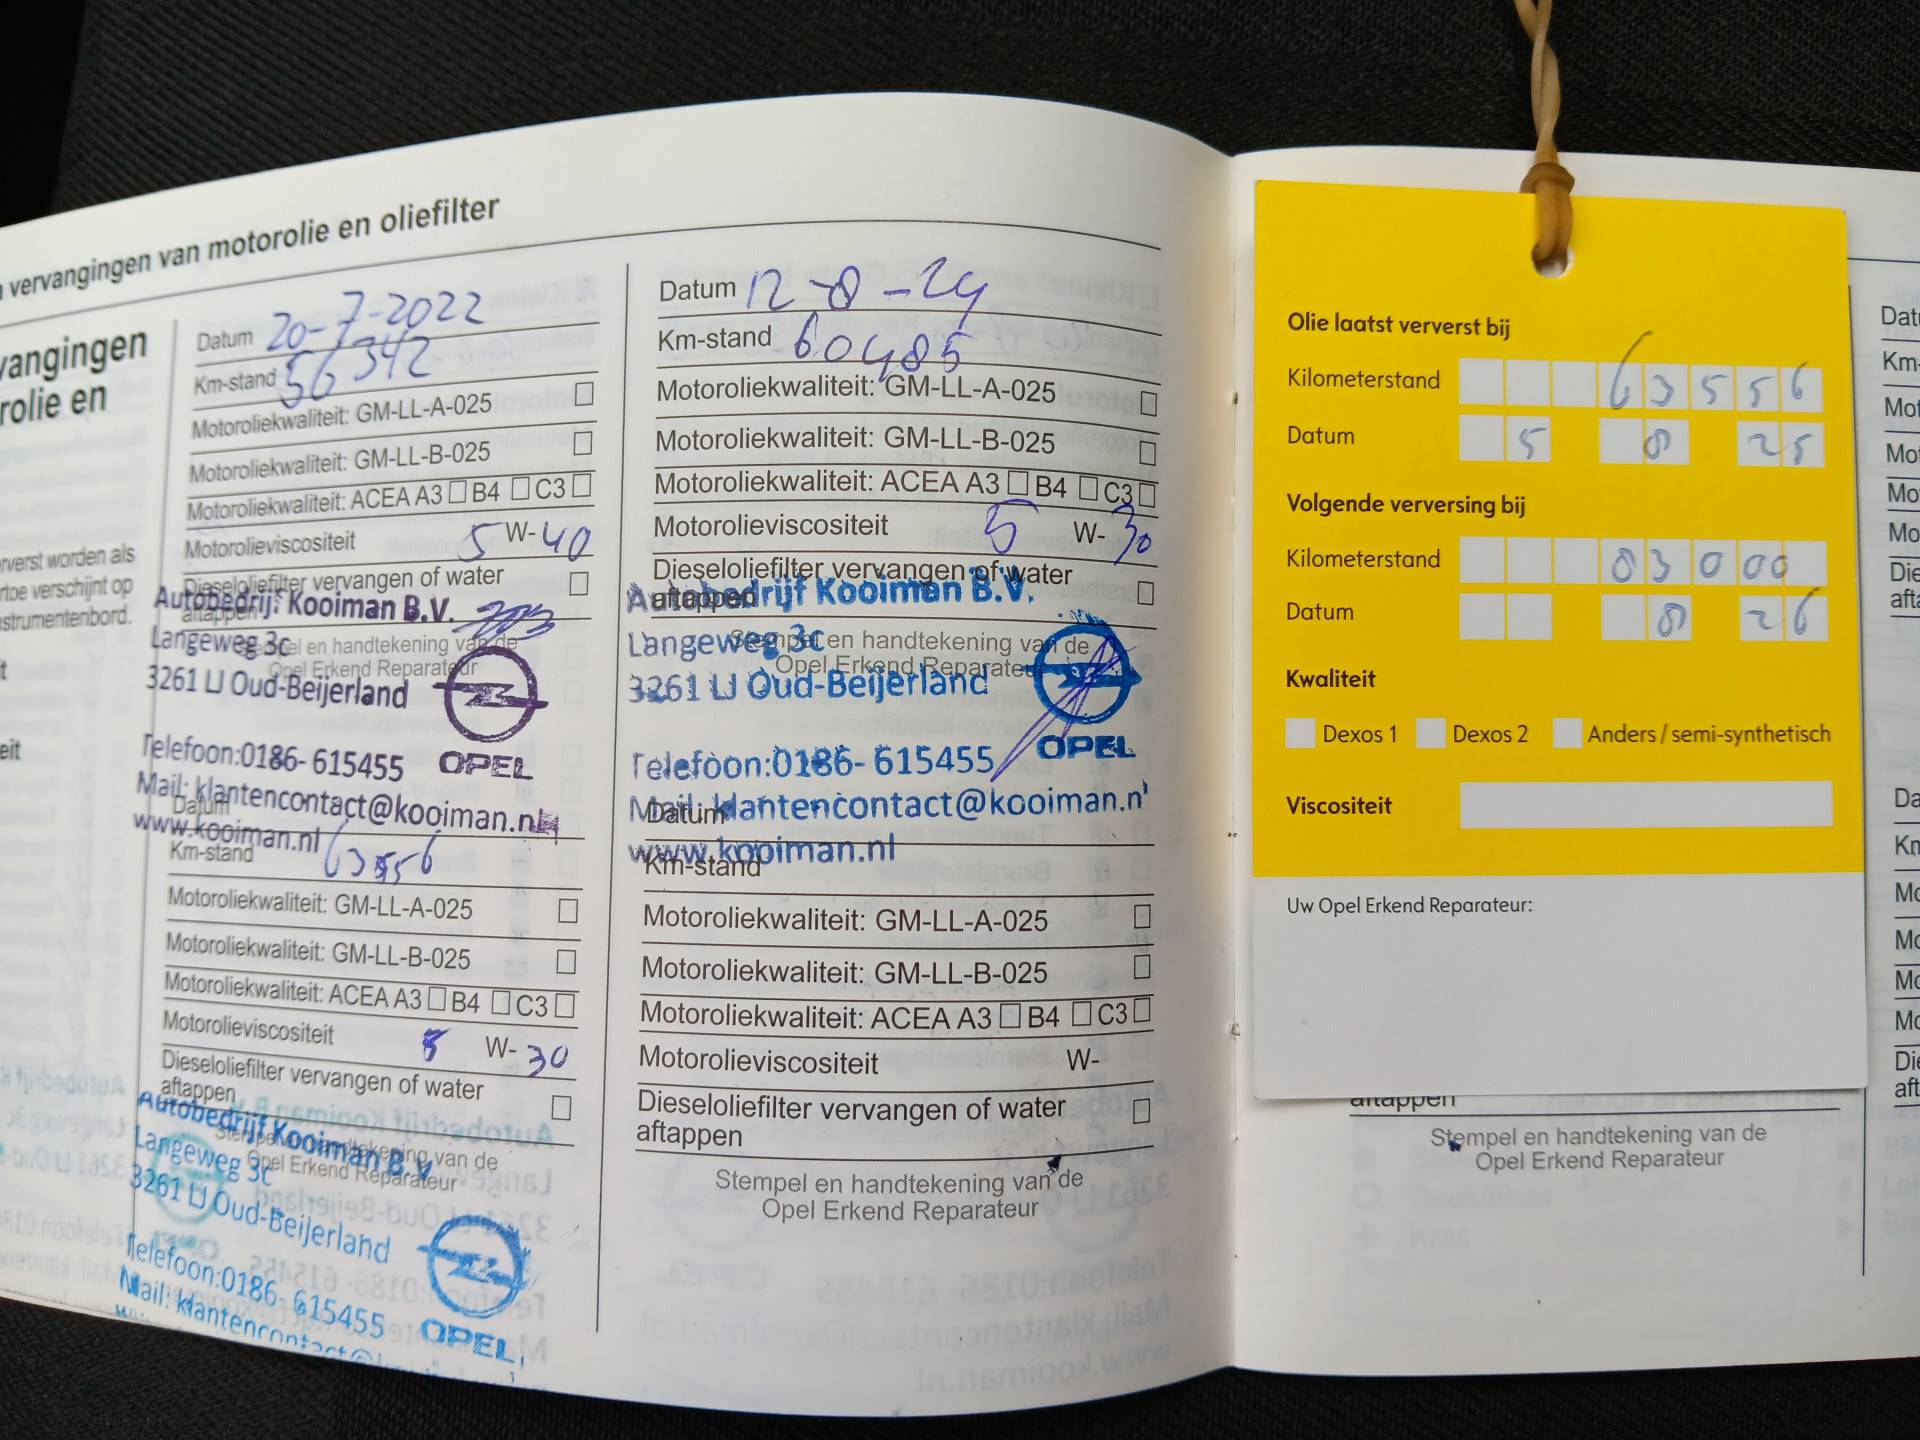 vervangingen van motorolie en oliefilter
vangingen
rolie en
rverst worden als
rtoe verschijnt op
strumentenbord.
t
eit
Datum 20-7-2022
Km-stand 56342
Motoroliekwaliteit: GM-LL-A-025
Motoroliekwaliteit: GM-LL-B-025
Motoroliekwaliteit: ACEA A3 B4 C3
Motorolieviscositeit 5 W-40
Dieseloliefilter vervangen of water
aftappen
Autobedrijf Kooiman B.V.
Langeweg 3c
Stempel en handtekening van de
Opel Erkend Reparateur
3261 LJ Oud-Beijerland
Telefoon:0186- 615455
OPEL
Mail: klantencontact@kooiman.nl
Datum
www.kooiman.nl
Km-stand 63556
Motoroliekwaliteit: GM-LL-A-025
Motoroliekwaliteit: GM-LL-B-025
Motoroliekwaliteit: ACEA A3 B4 C3
Motorolieviscositeit 5 W-30
Dieseloliefilter vervangen of water
aftappen
Autobedrijf Kooiman B.V.
Stempel en handtekening van de
Langeweg 3c
Opel Erkend Reparateur
3261 LJ Oud-Beijerland
Telefoon:0186- 615455
OPEL
Mail: klantencontact@
Datum 12-8-24
Km-stand 60485
Motoroliekwaliteit: GM-LL-A-025
Motoroliekwaliteit: GM-LL-B-025
Motoroliekwaliteit: ACEA A3 B4 C3
Motorolieviscositeit 5 W-30
Dieseloliefilter vervangen of water
aftappen
Autobedrijf Kooiman B.V.
Langeweg 3c
Stempel en handtekening van de
Opel Erkend Reparateur
3261 LJ Oud-Beijerland
OPEL
Telefoon:0186- 615455
Mail: klantencontact@kooiman.n
Datum
www.kooiman.nl
Km-stand
Motoroliekwaliteit: GM-LL-A-025
Motoroliekwaliteit: GM-LL-B-025
Motoroliekwaliteit: ACEA A3 B4 C3
Motorolieviscositeit W-
Dieseloliefilter vervangen of water
aftappen
Stempel en handtekening van de
Opel Erkend Reparateur
Olie laatst ververst bij
Kilometerstand 63556
Datum 5 8 25
Volgende verversing bij
Kilometerstand 83000
Datum 8 26
Kwaliteit
Dexos 1 Dexos 2 Anders / semi-synthetisch
Viscositeit
Uw Opel Erkend Reparateur:
aftappen
Stempel en handtekening van de
Opel Erkend Reparateur
Dat
Km-
Mot
Mot
Mo
Mo
Die
afta
Da
Kn
Mo
Mo
Mo
Mo
Die
aft